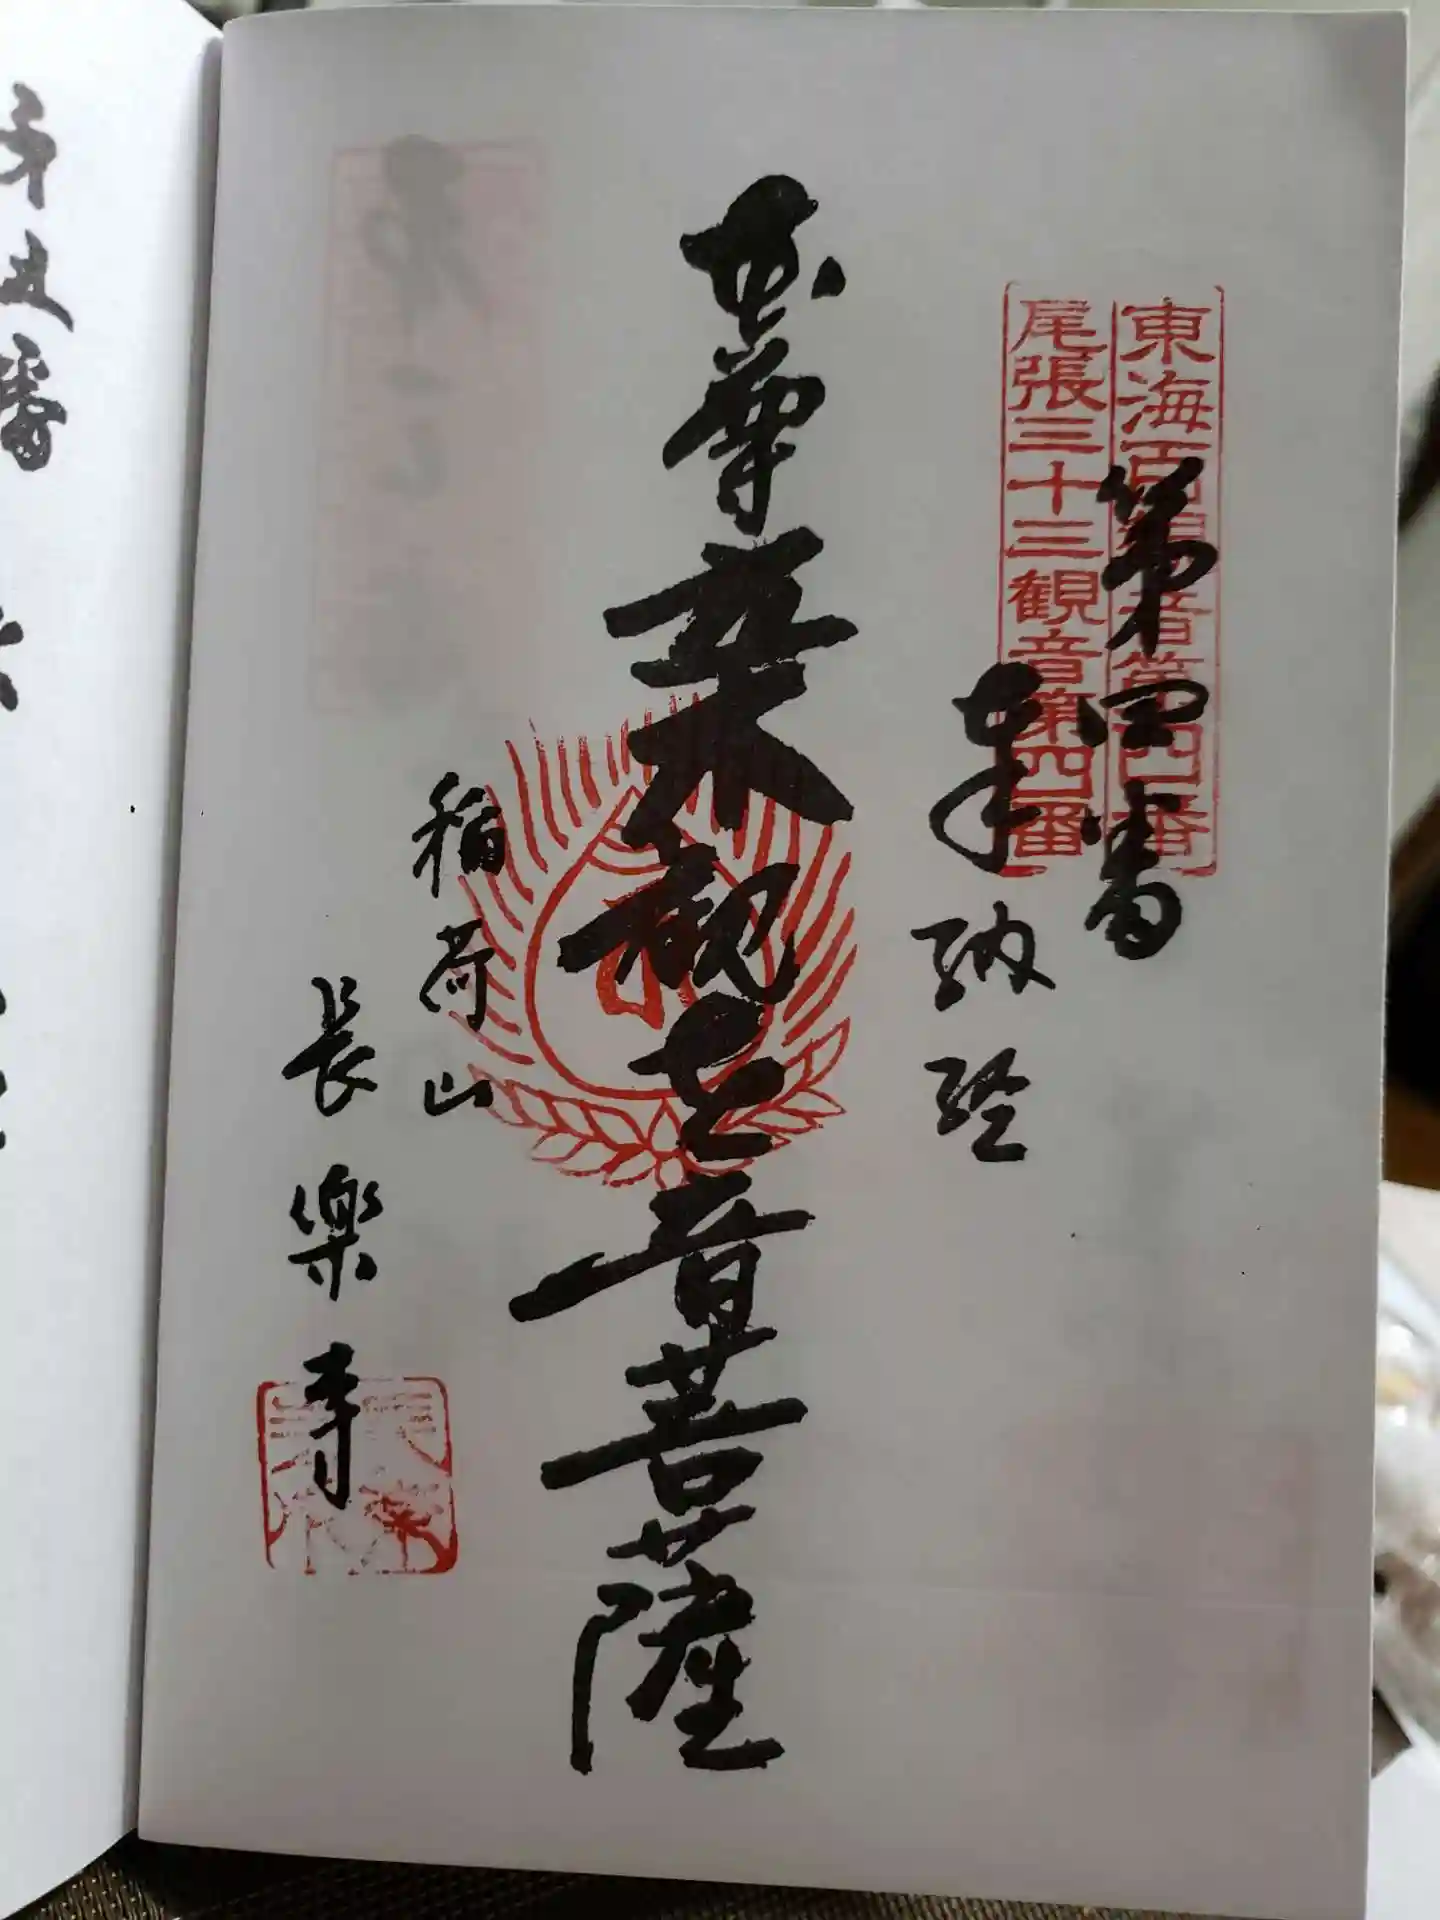 東海百観音第四番
尾張三十三観音第四番
第四番
奉納経
尊 観世音菩薩
稲荷山
長樂寺
番